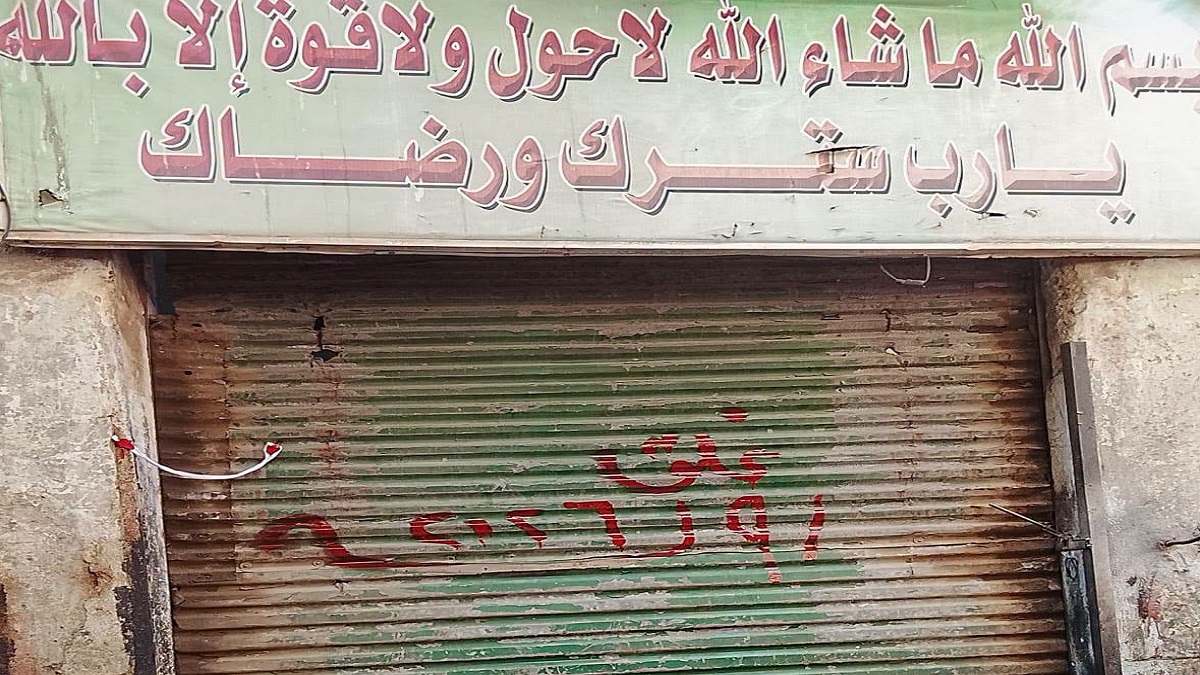 بسم الله ما شاء الله لاحول ولاقوة إلا بالله
يارب سترك ورضاك
غلق